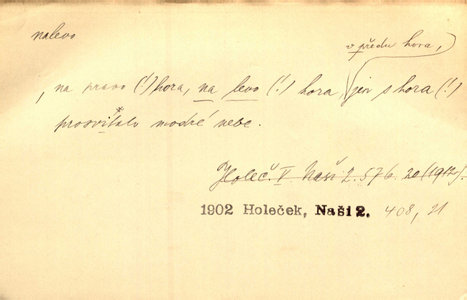 nalevo
v předu hora,
, na pravo (!) hora, na levo (!) hora jen s hora (!)
prosvítalo modré nebe.
Holeč. V Naši 2. 576. 20 (1912).
1902 Holeček, Naši 2. 408, 21